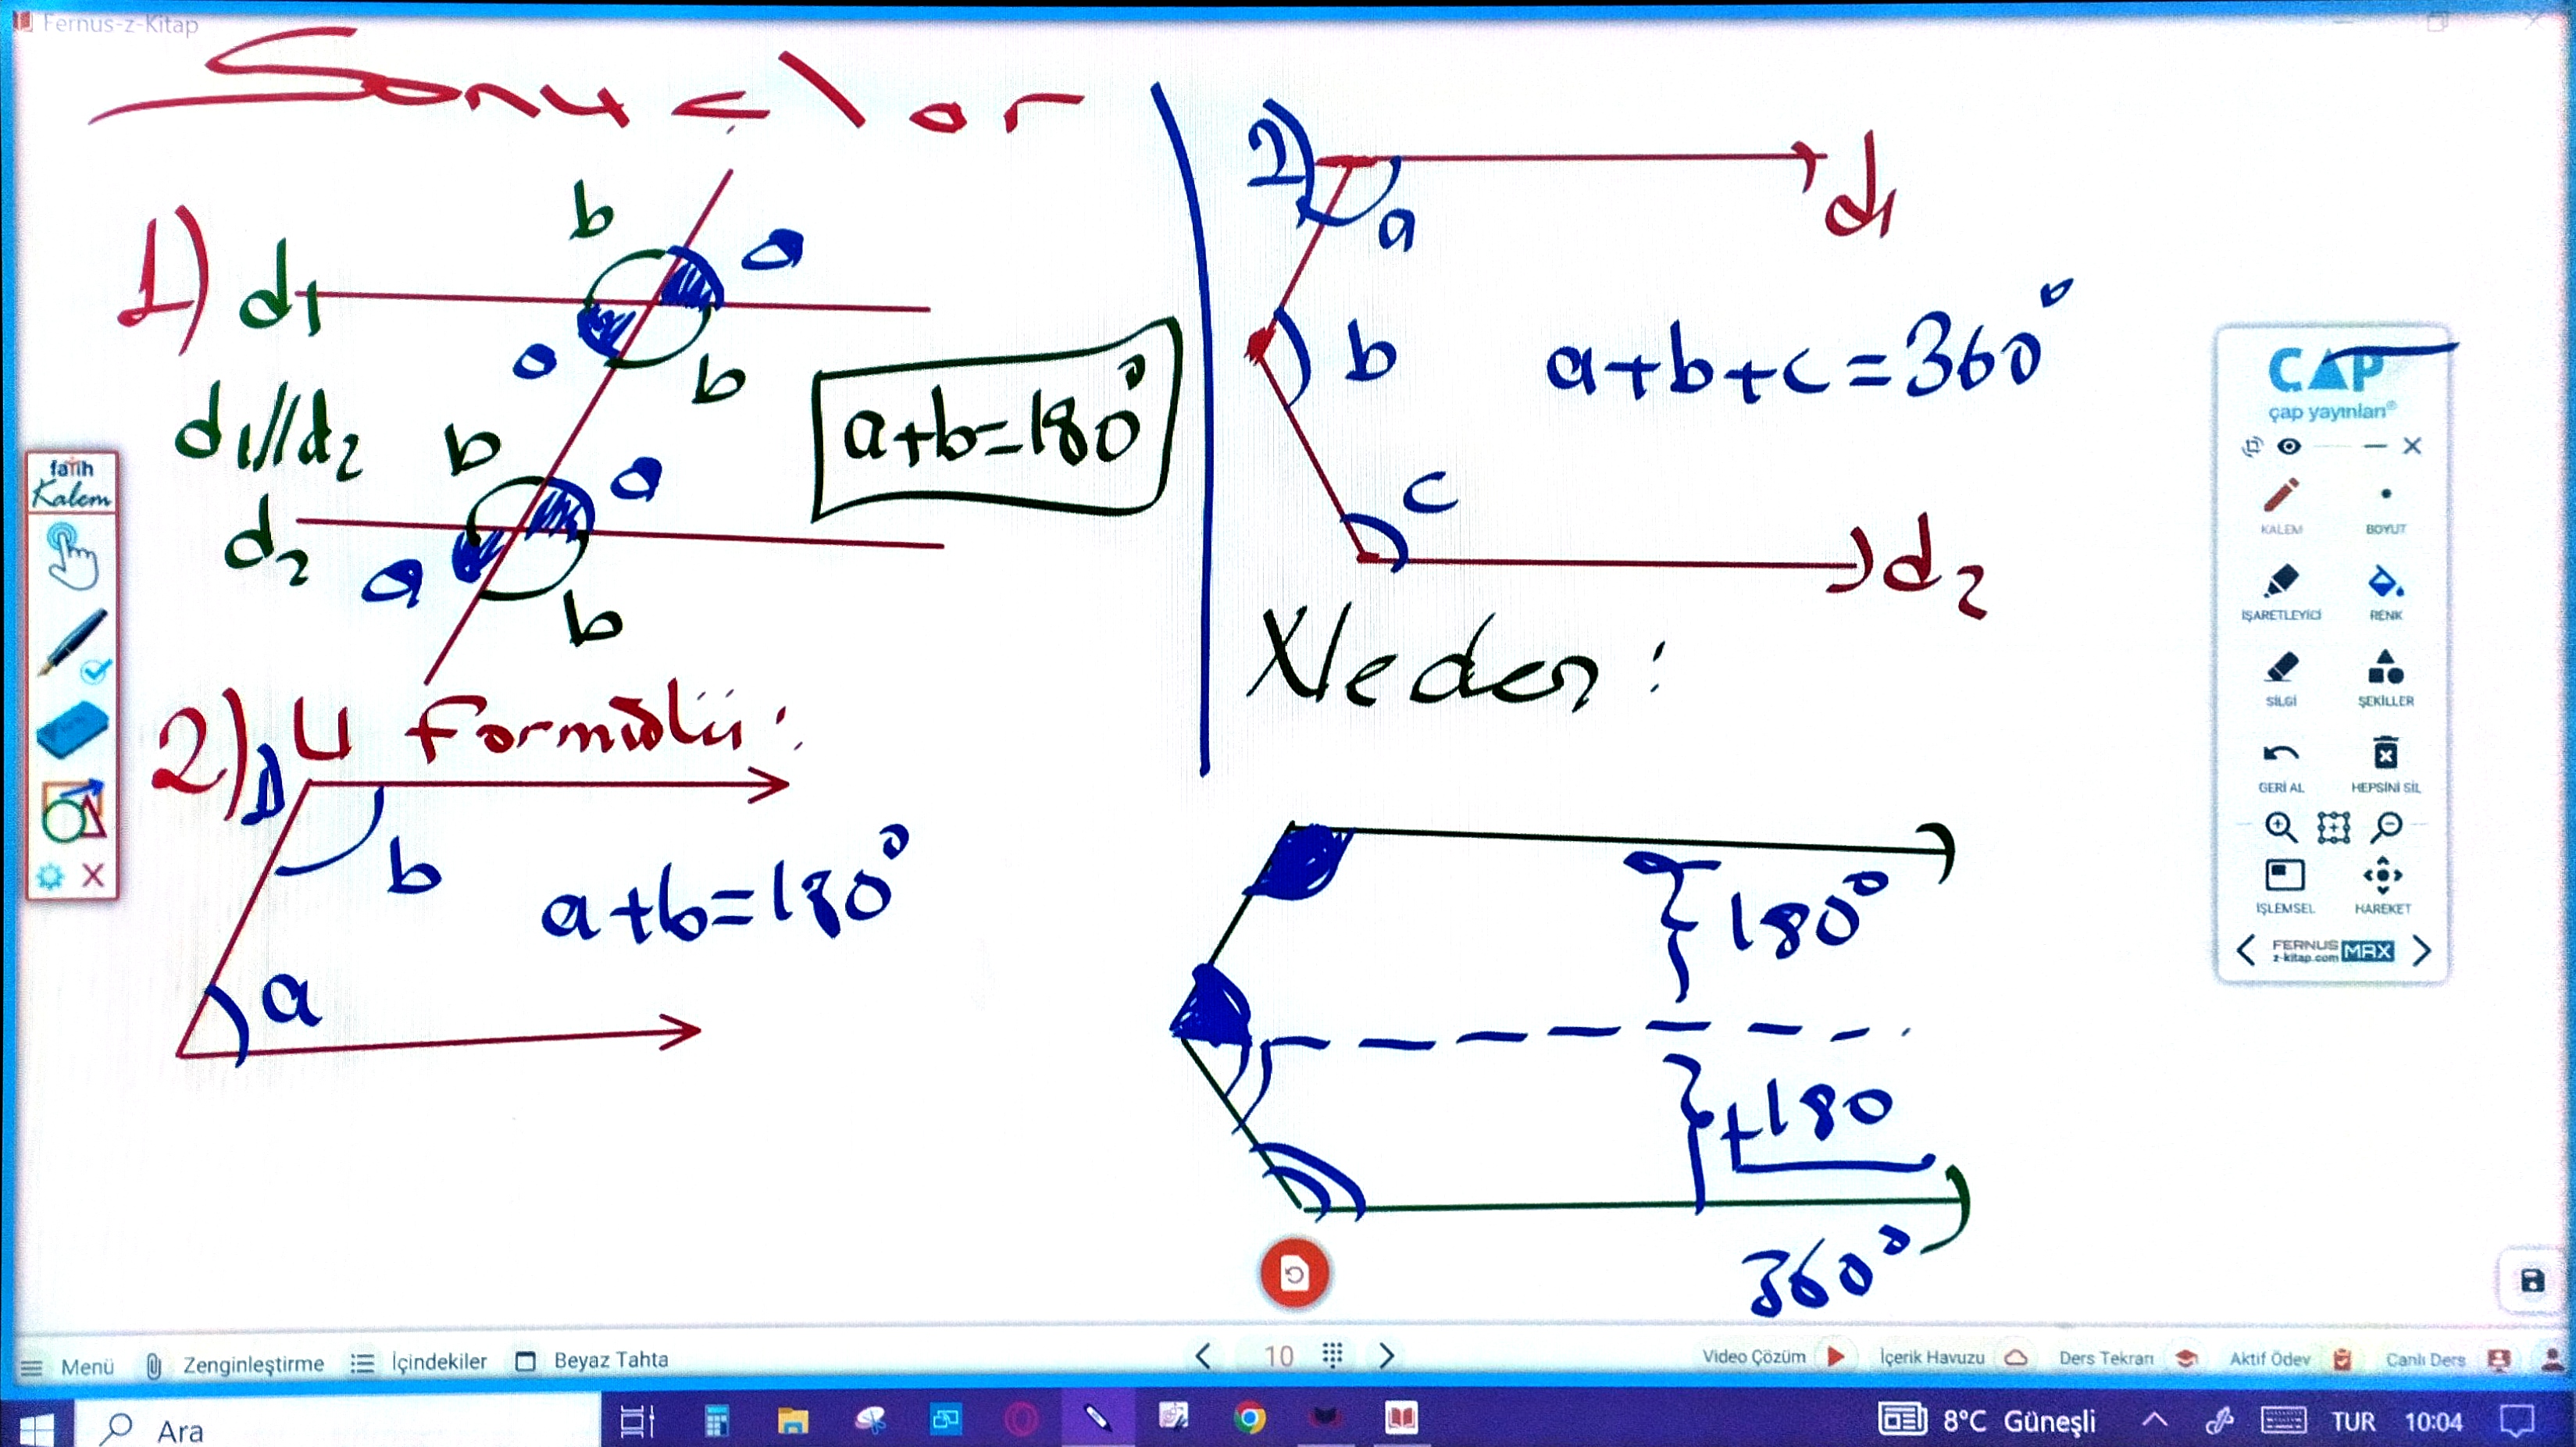 Fernus-z-Kitap
Sonuçlar
1)
b
a
d1
a
b
a+b=180°
d1//d2
b
a
d2
a
b
2) U Formülü:
b
a+b=180°
a
2)
d1
a
b
a+b+c=360°
c
d2
Neden:
180°
+180
360°
fatih
Kalem
ÇAP
çap yayınları®
KALEM
BOYUT
İŞARETLEYİCİ
RENK
SİLGİ
ŞEKİLLER
GERİ AL
HEPSİNİ SİL
İŞLEMSEL
HAREKET
FERNUS
z-kitap.com
MAX
Menü
Zenginleştirme
İçindekiler
Beyaz Tahta
10
Video Çözüm
İçerik Havuzu
Ders Tekrarı
Aktif Ödev
Canlı Ders
Ara
8°C Güneşli
TUR
10:04